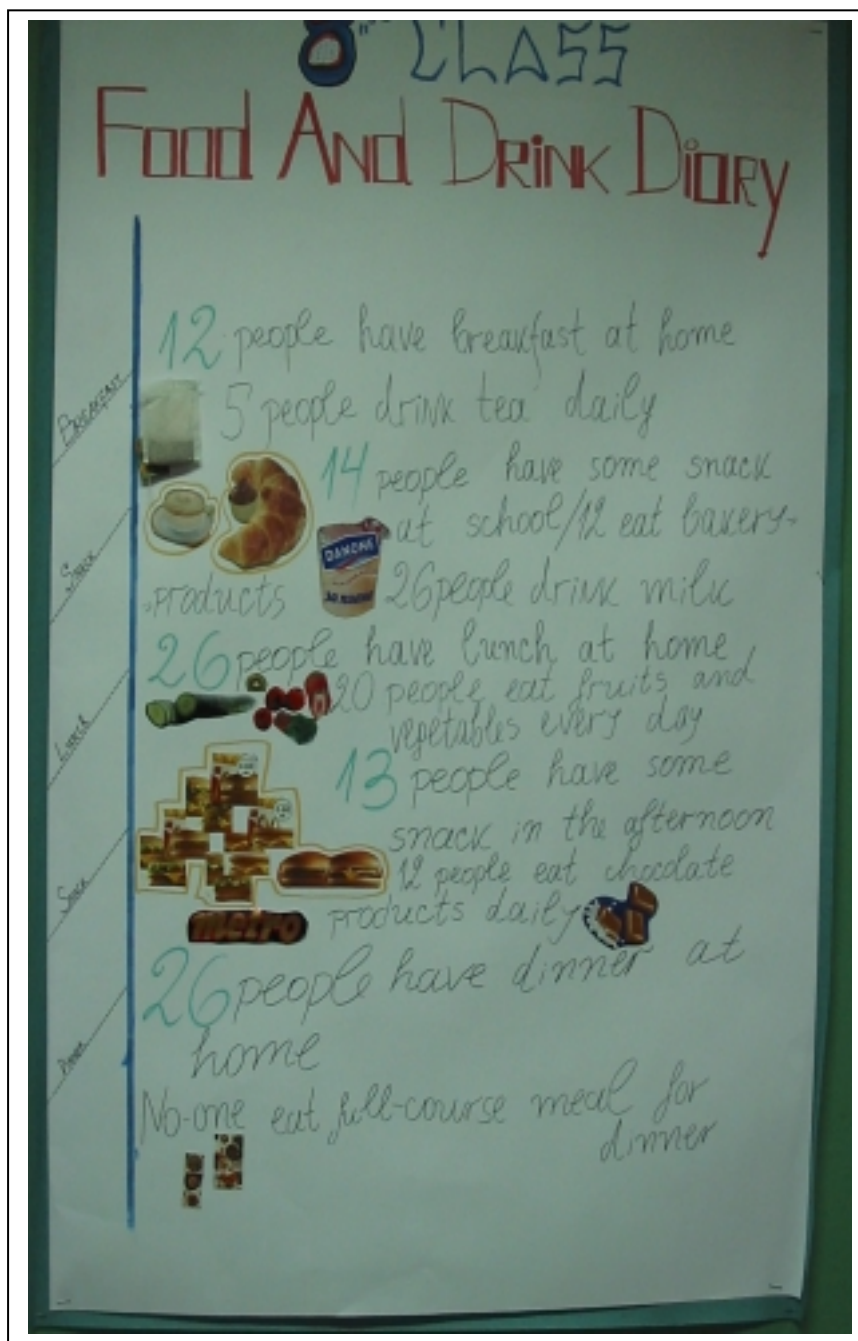 8th CLASS
Food And Drink Diary
BREAKFAST
12 people have breakfast at home
5 people drink tea daily
SNACK
14 people have some snack
at school/12 eat bakery-
-products
DANONE
26 people drink milk
LUNCH
26 people have lunch at home
20 people eat fruits and
vegetables every day
SNACK
13 people have some
snack in the afternoon
12 people eat chocolate
products daily
metro
DINNER
26 people have dinner at
home
No-one eat full-course meal for
dinner